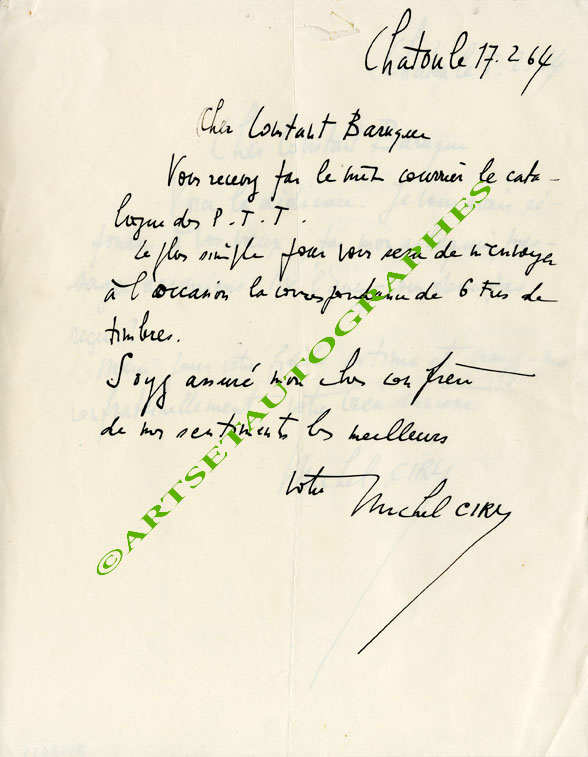 Chatou le 17.2.64
Cher Constant Baruque
Vous recevez par le même courrier le cata-
logue des P.T.T.
Le plus simple pour vous sera de m'envoyer
à l'occasion la correspondance de 6 Frs de
timbres.
Soyez assuré mon cher confrère
de mes sentiments les meilleurs
votre
Michel CIRY
©ARTSETAUTOGRAPHES